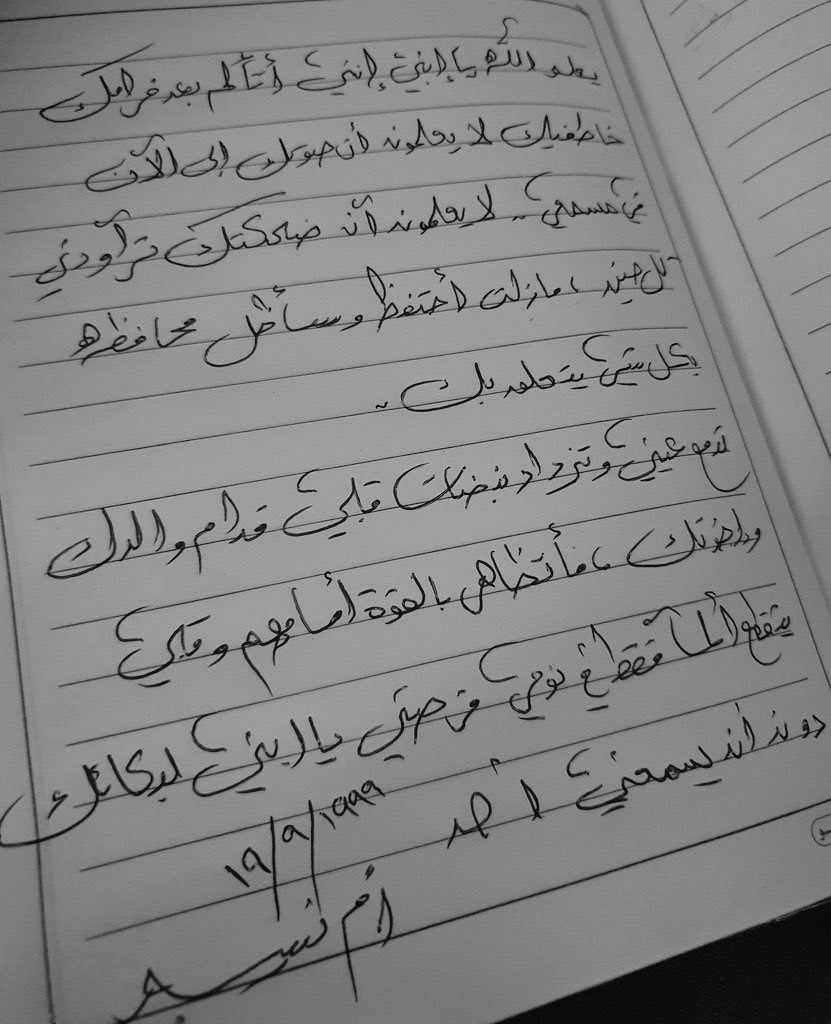 يعلم الله يا إبني إنني أتألم بعد فراقك
خاطفيك لا يعلمون أن صوتك إلى الآن
في مسمعي .. لا يعلمون أن ضحكتك تراودني
كل حين ، مازلت أحتفظ وسأظل محافظه
بكل شيئ يتعلق بك ..
تدمع عيني وتزداد نبضات قلبي قدام والدك
وإخوتك ، فأتظاهر بالقوة أمامهم وقلبي
يتقطع ألماً فقط في نومي فرصتي يا ابني لبكائك
دون أن يسمعني أحد
١٩/٩/١٩٩٩
أم